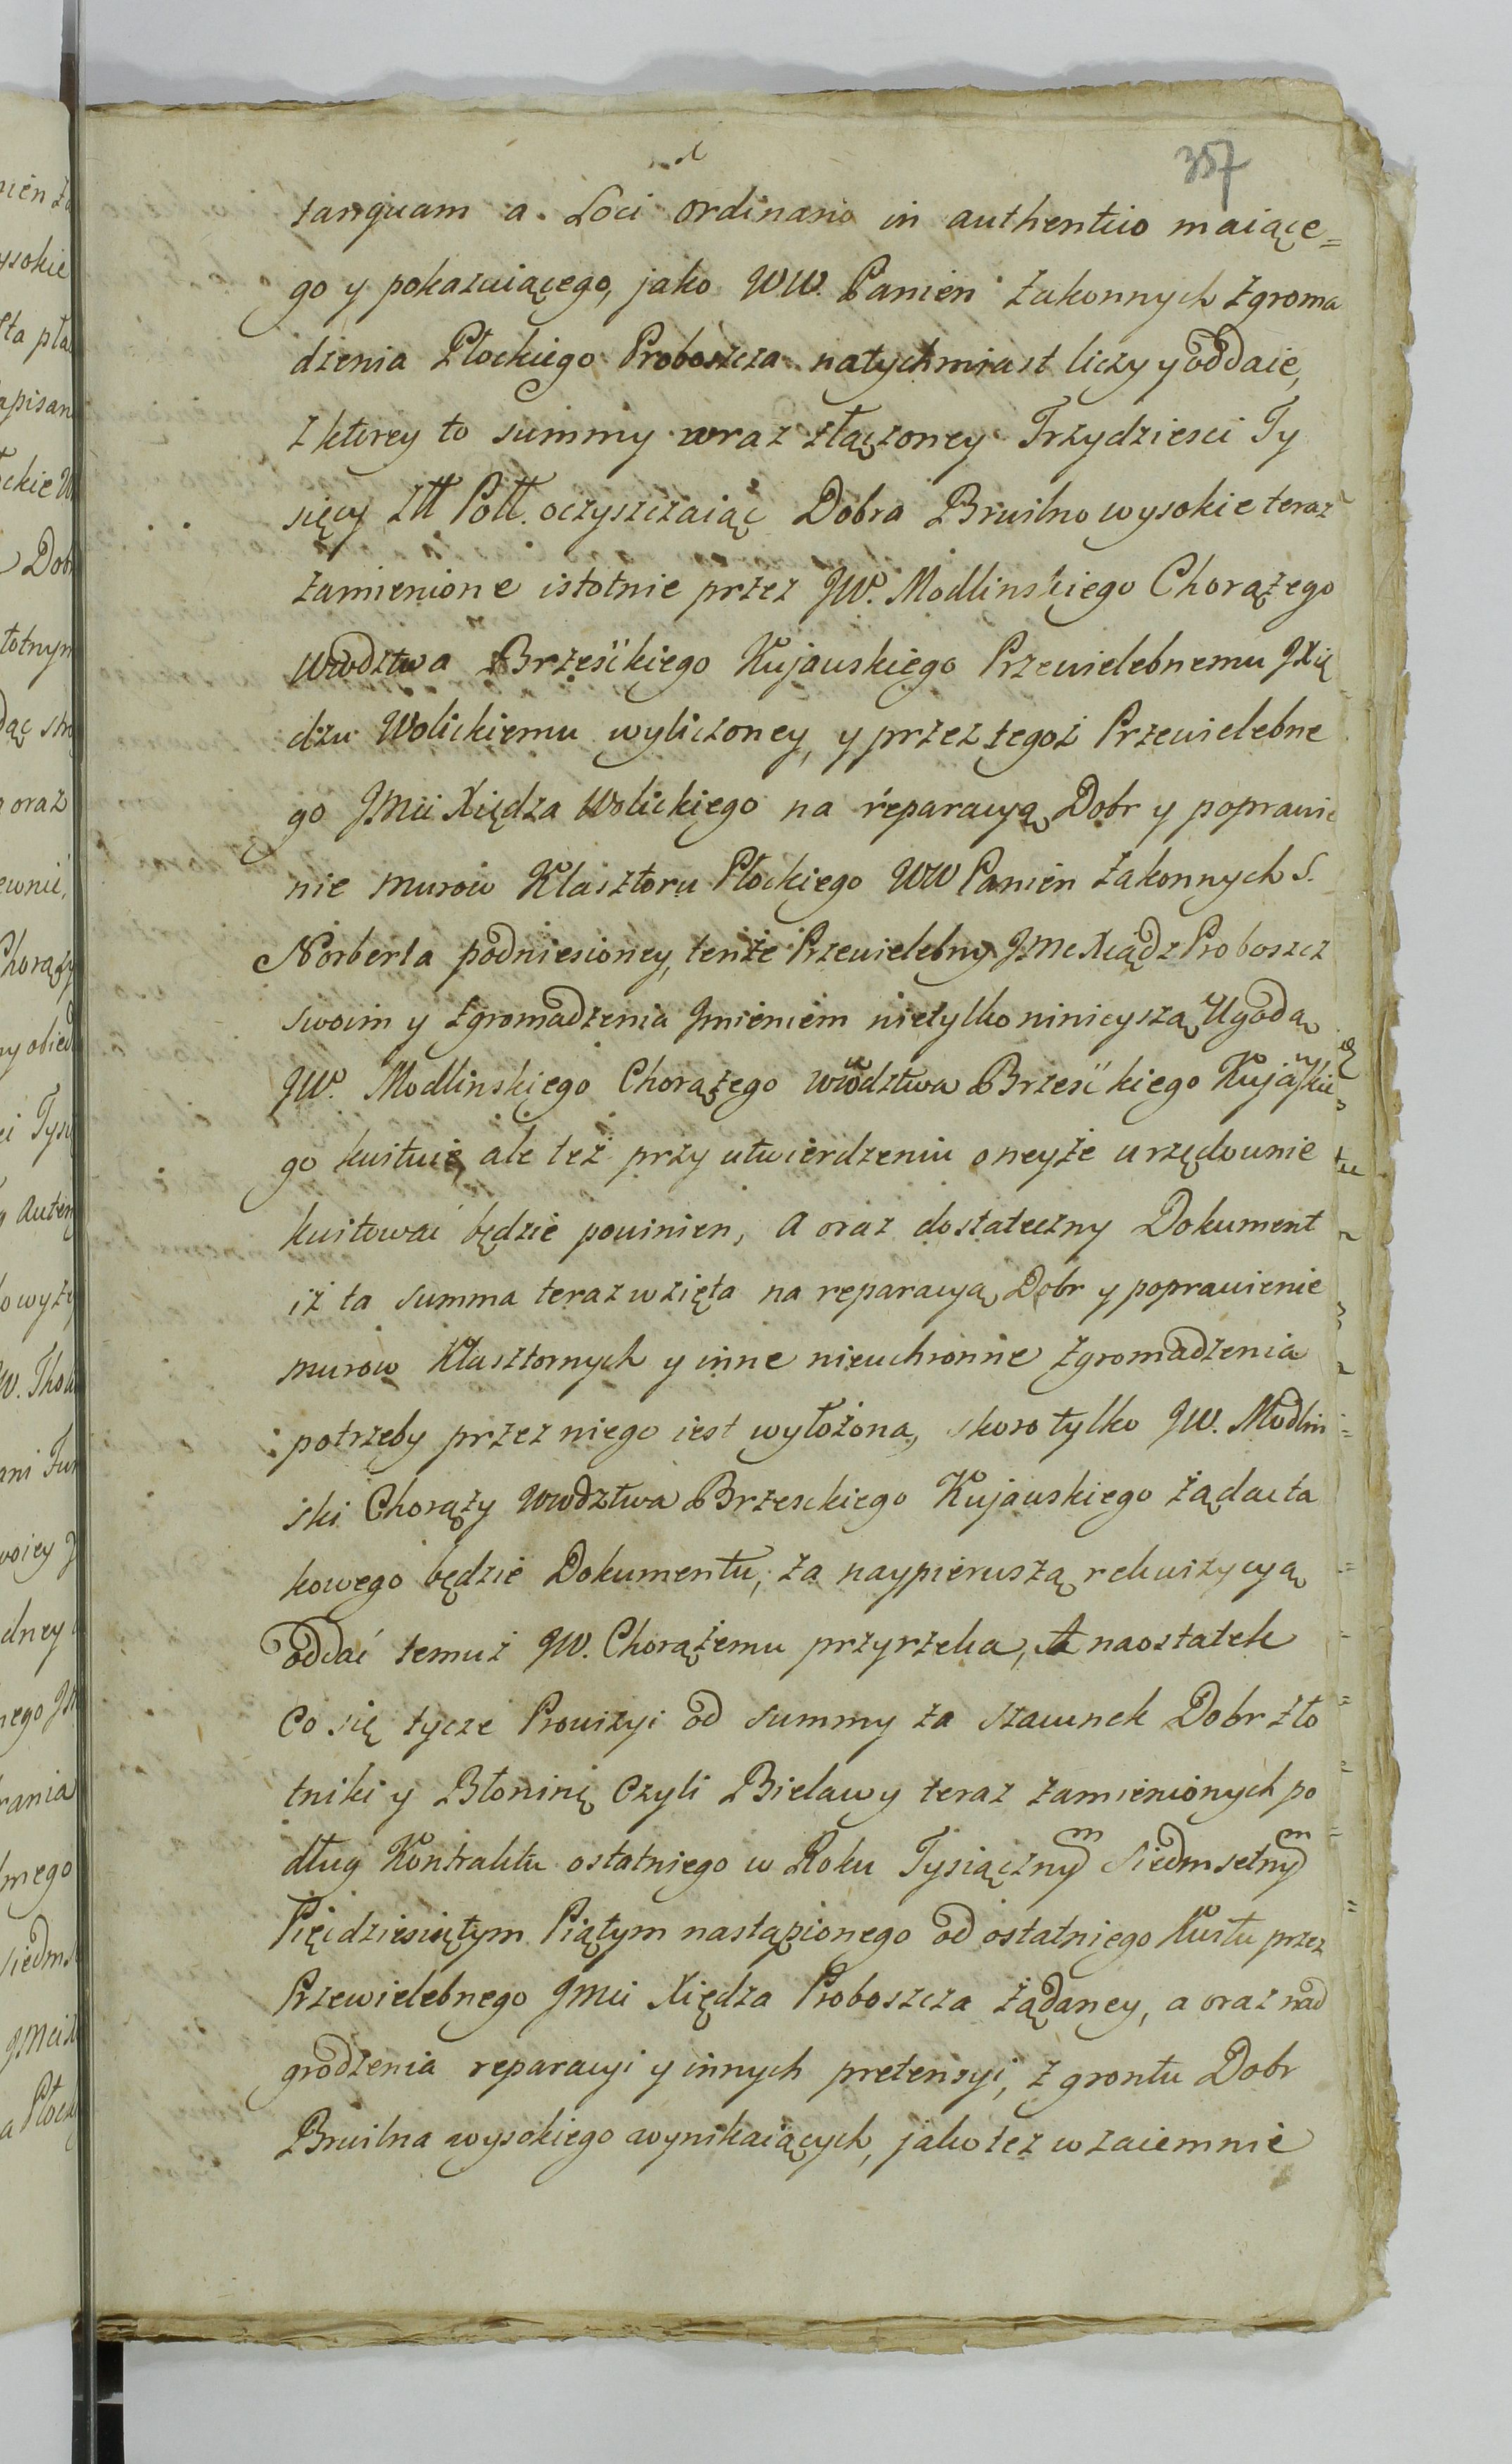 357
tanquam a Loci ordinario in authentico maiące=
go y pokazuiącego, jako WW. Panien Zakonnych Zgroma
dzenia Płockiego Proboszcza natychmiast liczy y oddaie,
z ktorey to summy wraz złączoney Trzydziesci Ty
sięcy Złł Poll. oczyszczaiąc Dobra Brwilno wysokie teraz
zamienione istotnie przez JW. Modlinskiego Chorążego
Wwodztwa Brześćkiego Kujawskiego Przewielebnemu JXię
dzu Wolickiemu wyliczoney, y przez tegoż Przewielebne
go JMci Xiędza Wolickiego na reparacyą Dobr y poprawie
nie murow Klasztoru Płockiego WW Panien Zakonnych S.
Norberta podniesioney, tenże Przewielebny JMc Xiądz Proboszcz
swoim y Zgromadzenia Jmieniem nietylko ninieyszą Ugodą
JW. Modlinskiego Chorążego Wwodztwa Brześćkiego Kujawskie
go kwituie, ale też przy utwierdzeniu oneyże urzędownie
kwitować będzie powinien, a oraz dostateczny Dokument
iż ta summa teraz wzięta na reparacyą Dobr y poprawienie
murow Klasztornych y inne nieuchronne Zgromadzenia
potrzeby przez niego iest wyłożona, skoro tylko JW. Modlin
ski Chorąży Wwdztwa Brzesckiego Kujawskiego żądać ta
kowego będzie Dokumentu, za naypierwszą rekwizycyą
oddać temuż JW. Chorążemu przyrzeka, A naostatek
Co się tycze Prowizyi od summy za szacunek Dobr Zło
tniki y Błoninię Czyli Bielawy teraz zamienionych po
dług Kontraktu ostatniego w Roku Tysiącznym Siedmsetnym
Pięćdziesiętym Piątym nastąpionego od ostatniego Kwitu przez
Przewielebnego JMci Xiędza Proboszcza żądaney, a oraz nad
grodzenia reparacyi y innych pretensyi, z grontu Dobr
Brwilna wysokiego wynikaiących, jako też wzaiemnie